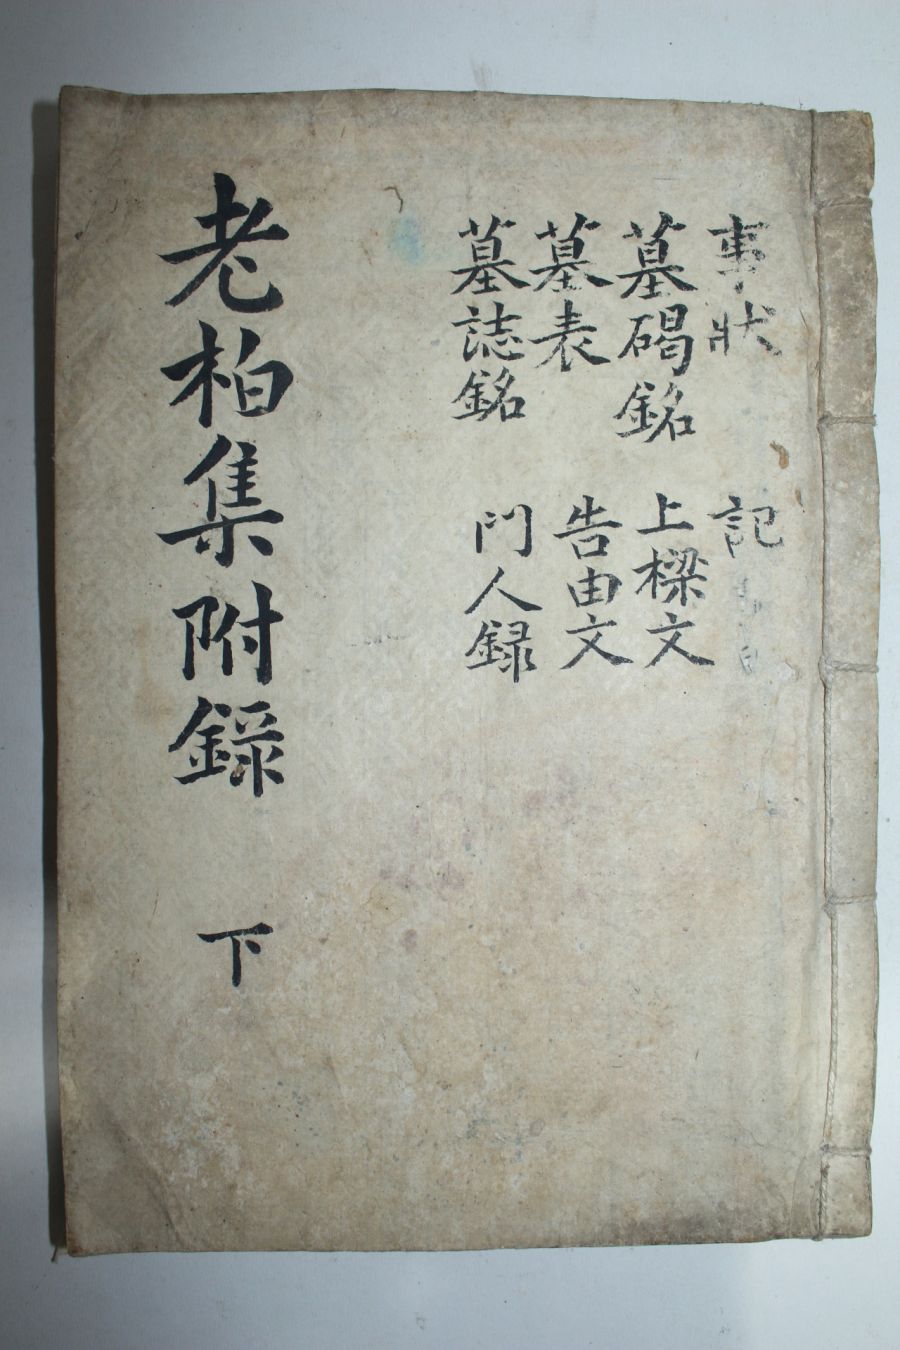 事狀
墓碣銘
墓表
墓誌銘
記
上樑文
告由文
門人録
老柏集附録 下